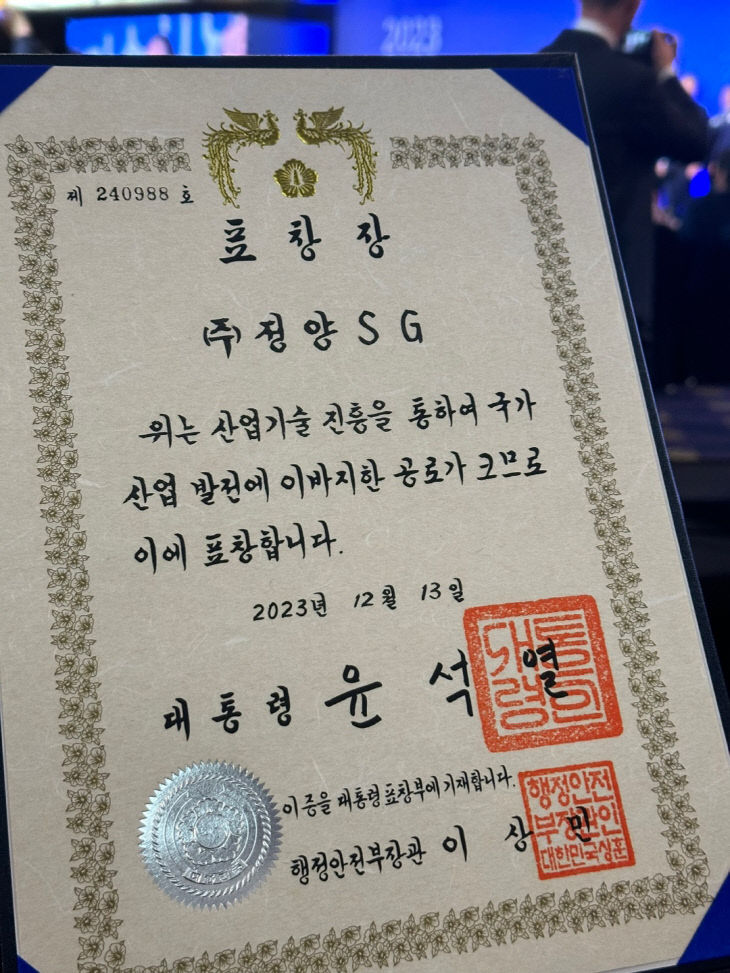 2023
제 240988 호
표창장
(주)정양SG
위는 산업기술 진흥을 통하여 국가
산업 발전에 이바지한 공로가 크므로
이에 표창합니다.
2023년 12월 13일
대통령 윤석열
대통령의인
이 증을 대통령표창부에 기재합니다.
행정안전부장관 이상민
행정안전
부장관인
대한민국상훈